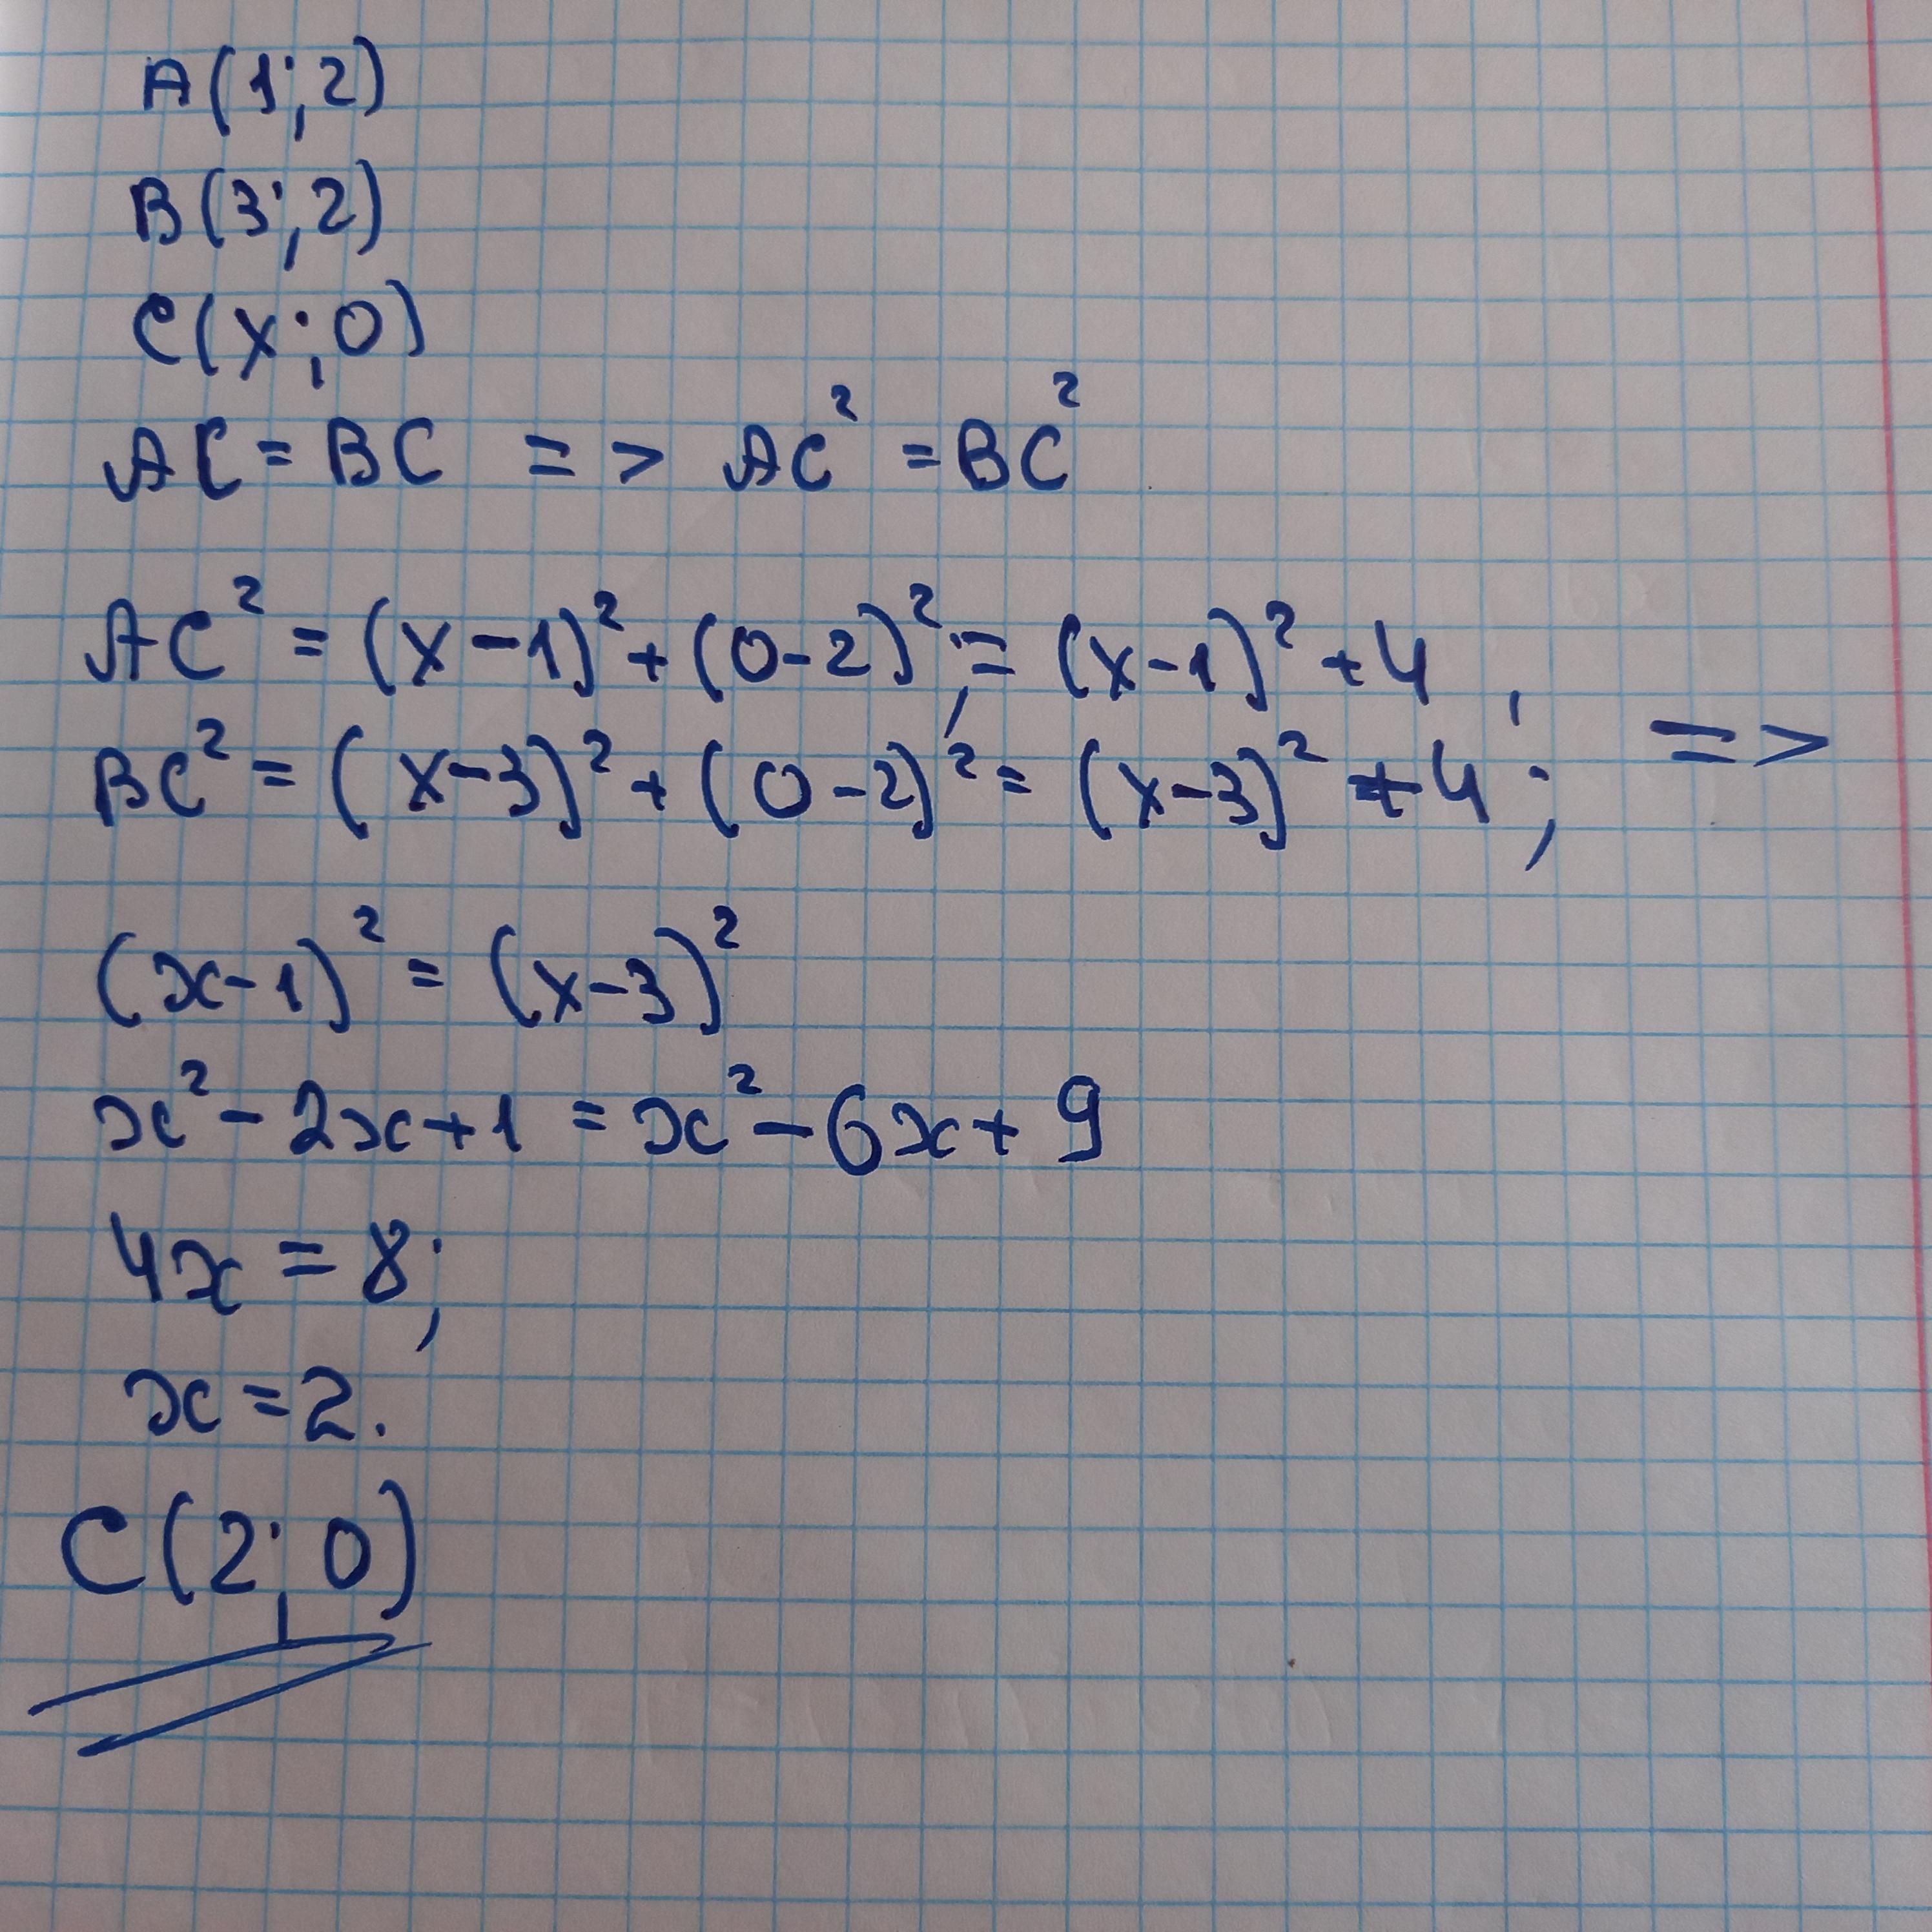 A(1;2)
B(3;2)
C(x;0)
AC = BC => AC² = BC²
AC² = (x-1)² + (0-2)²; = (x-1)² + 4;
BC² = (x-3)² + (0-2)² = (x-3)² + 4; =>
(x-1)² = (x-3)²
x² - 2x + 1 = x² - 6x + 9
4x = 8;
x = 2.
C(2;0)